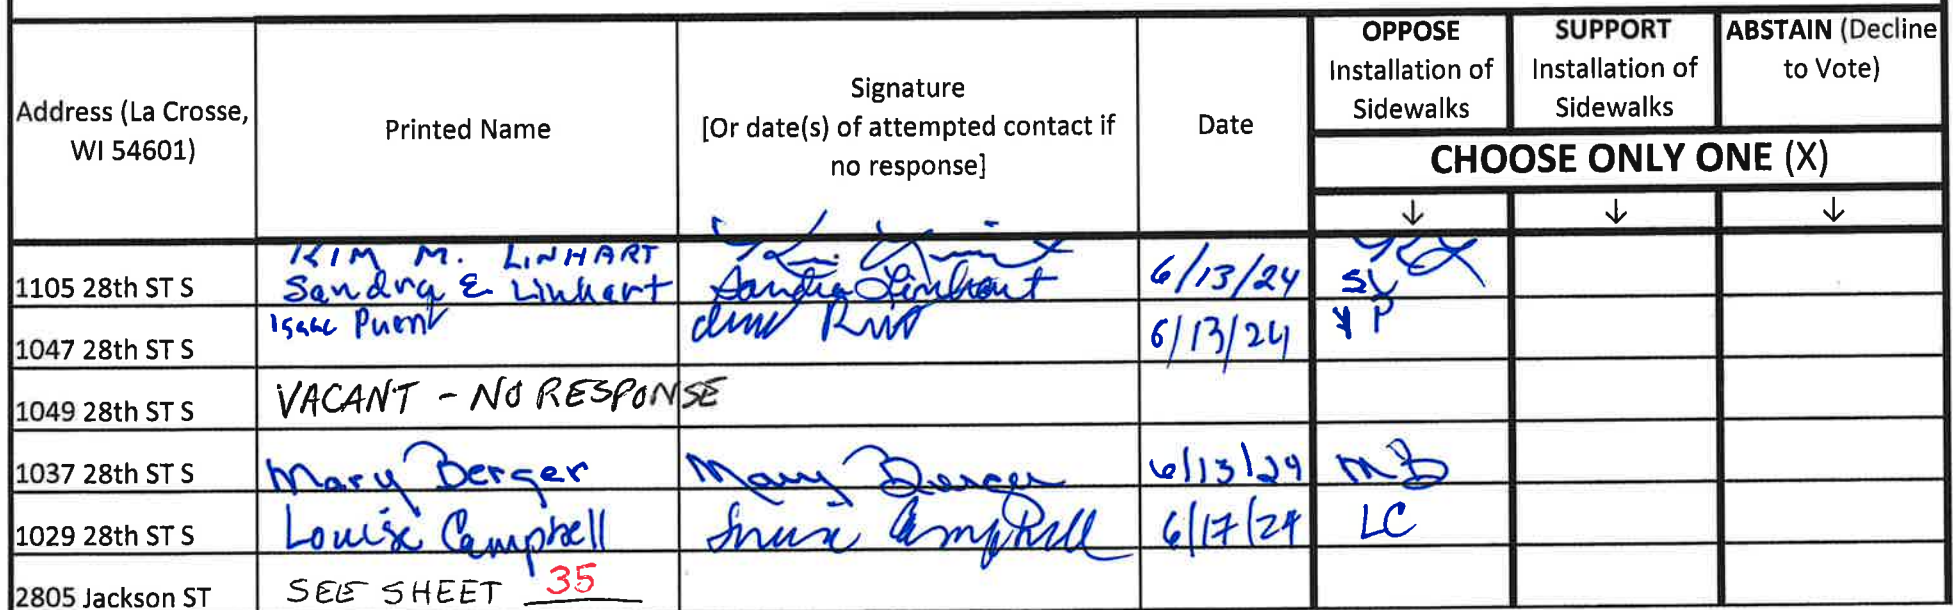 Address (La Crosse, WI 54601)
Printed Name
Signature
[Or date(s) of attempted contact if no response]
Date
OPPOSE Installation of Sidewalks
SUPPORT Installation of Sidewalks
ABSTAIN (Decline to Vote)
CHOOSE ONLY ONE (X)
↓ ↓ ↓
KIM M. LINHART
1105 28th ST S Sandra E Linhart Sandra Linhart 6/13/24 SL
1047 28th ST S Isaac 6/13/24 P
1049 28th ST S VACANT - NO RESPONSE
1037 28th ST S Mary Berger Mary Berger 6/13/24 MB
1029 28th ST S Louise Campbell Louise Campbell 6/17/24 LC
2805 Jackson ST SEE SHEET 35